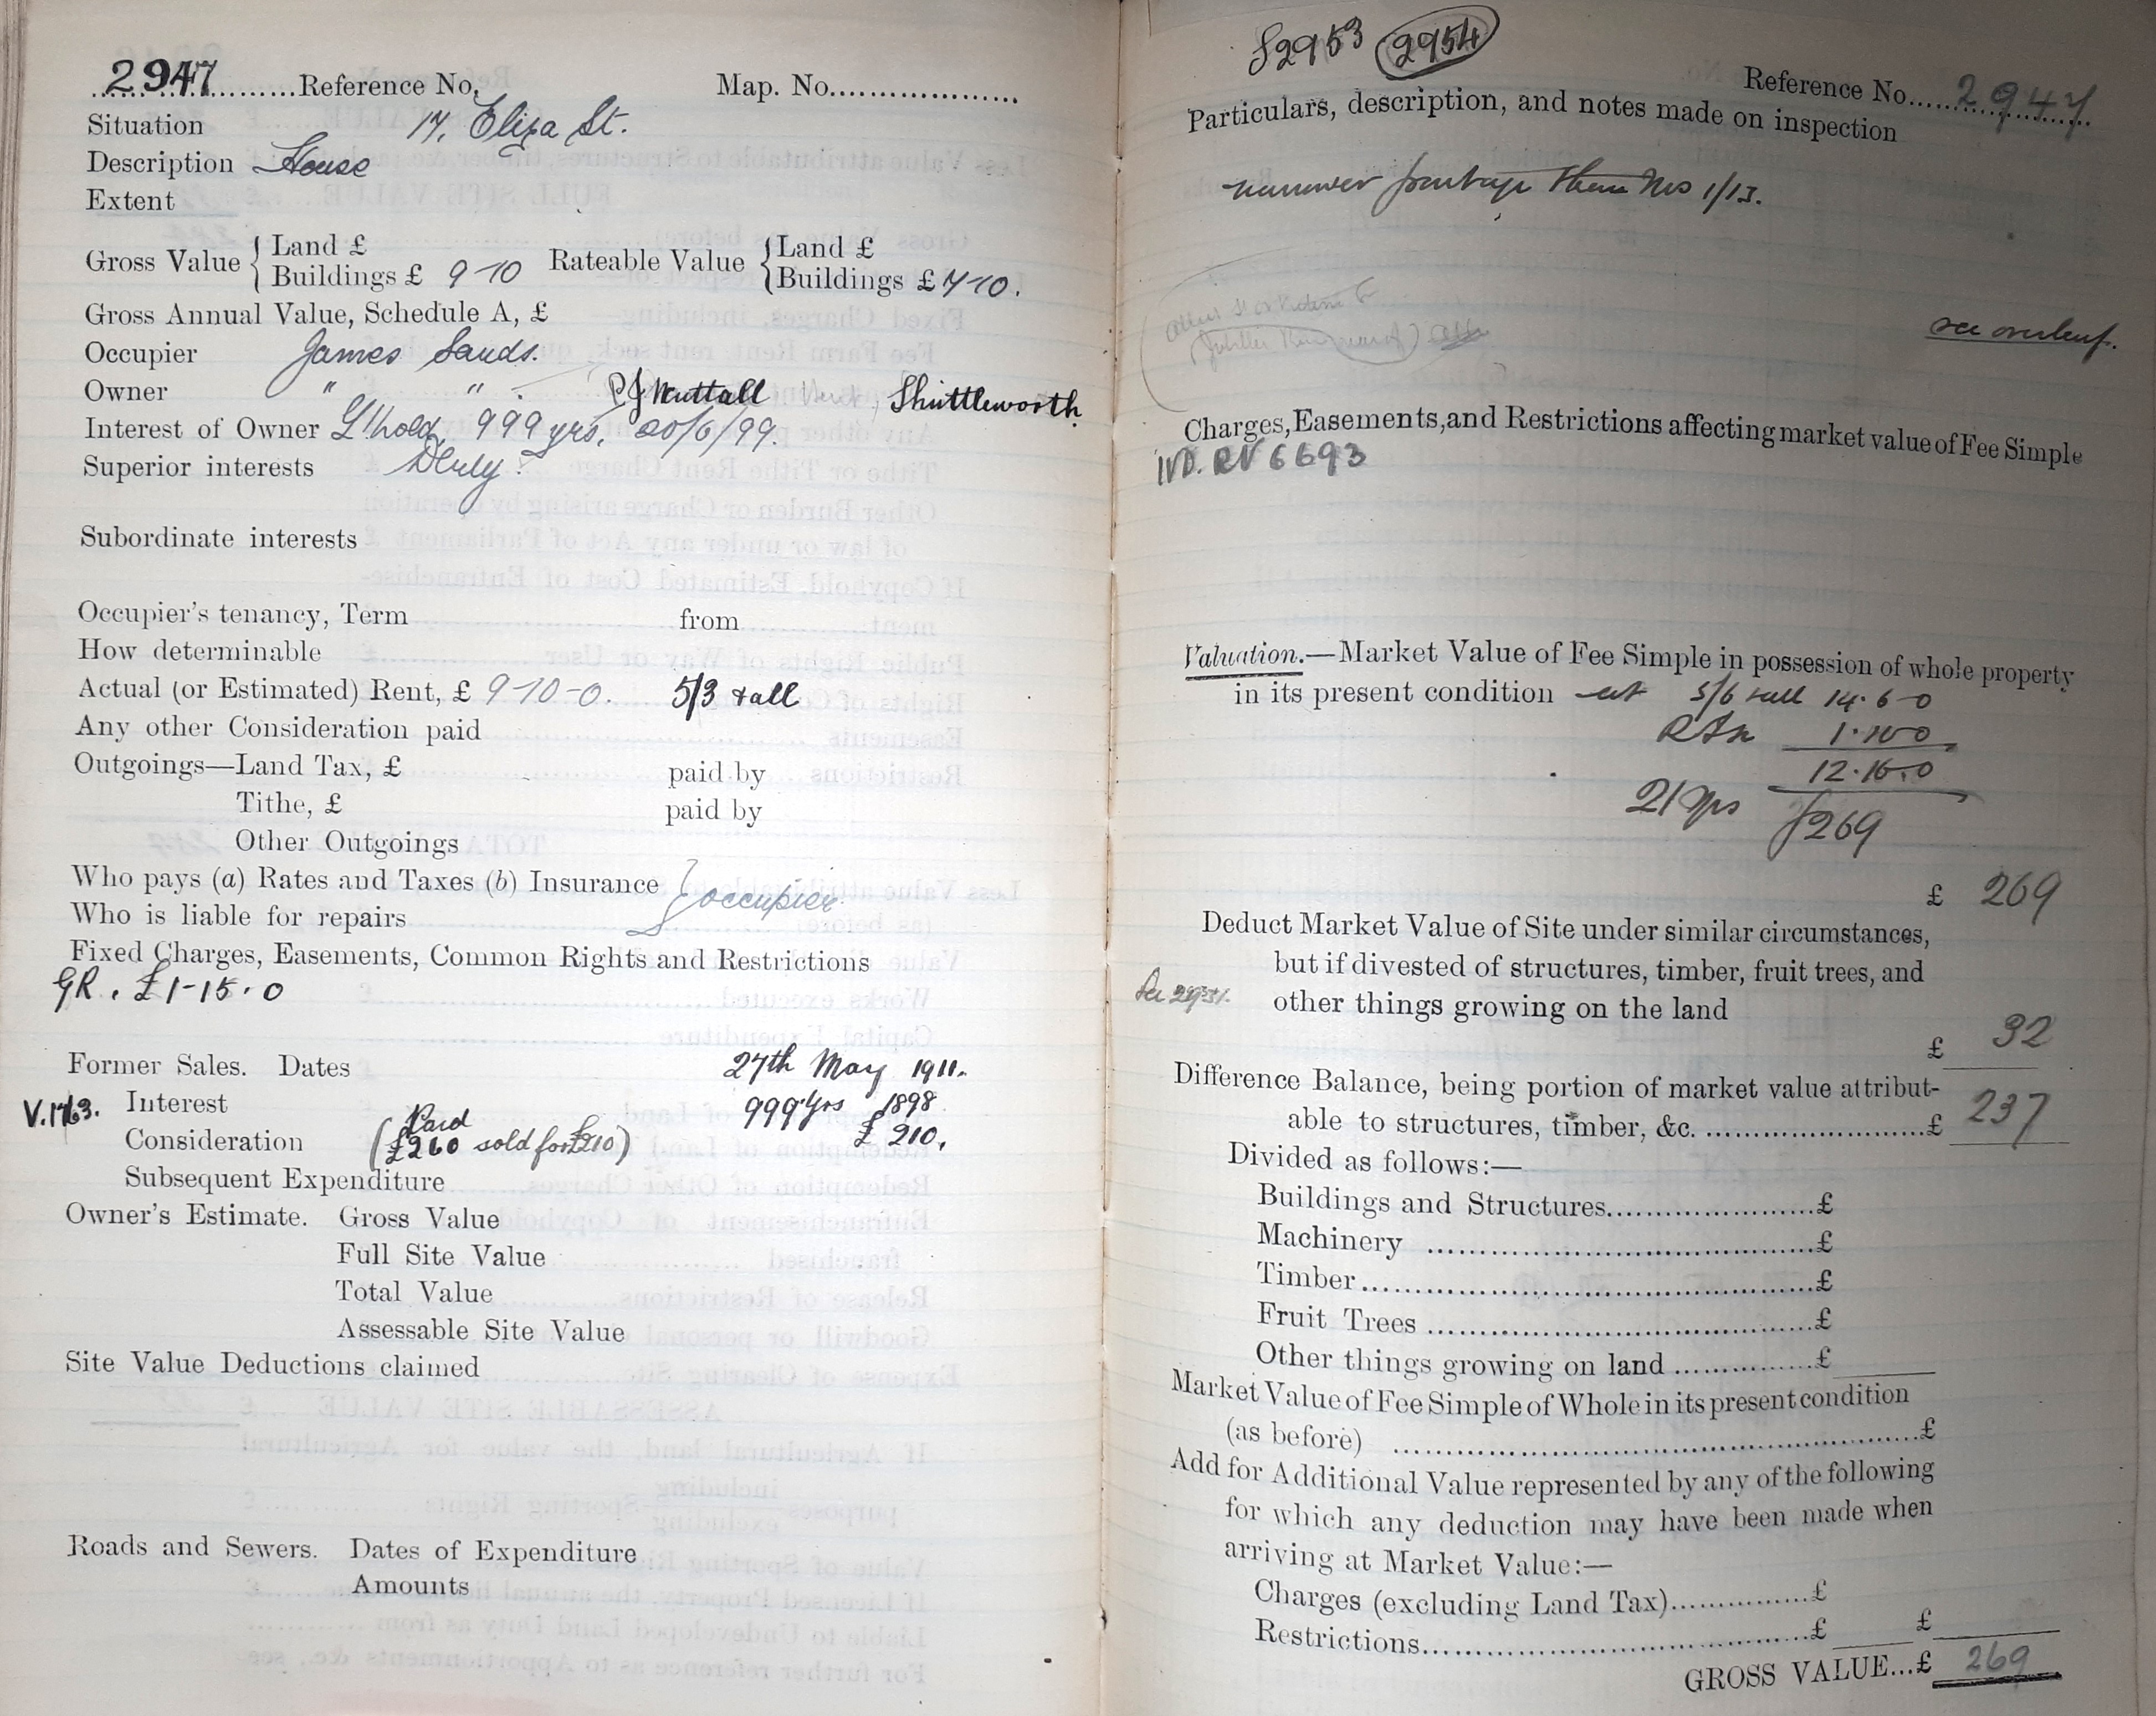 2947 Reference No. Map. No.
Situation 17, Eliza St.
Description House
Extent
Gross Value { Land £ Rateable Value { Land £
Buildings £ 9-10 Buildings £ 7-10.
Gross Annual Value, Schedule A, £
Occupier James Sands.
Owner " " . P J Nuttall Shuttleworth.
Interest of Owner L'hold, 999 yrs, 20/6/99.
Superior interests
Subordinate interests
Occupier's tenancy, Term from
How determinable
Actual (or Estimated) Rent, £ 9-10-0. 5/3 + all
Any other Consideration paid
Outgoings—Land Tax, £ paid by
Tithe, £ paid by
Other Outgoings
Who pays (a) Rates and Taxes (b) Insurance } occupier.
Who is liable for repairs
Fixed Charges, Easements, Common Rights and Restrictions
GR. £1-15.0
Former Sales. Dates 27th May 1911.
V.1763. Interest 999 Yrs 1898
Paid
Consideration (£260 sold for £210) £ 210.
Subsequent Expenditure
Owner's Estimate. Gross Value
Full Site Value
Total Value
Assessable Site Value
Site Value Deductions claimed
Roads and Sewers. Dates of Expenditure
Amounts
2953 2954
Reference No. 2947
Particulars, description, and notes made on inspection
narrower frontage than Nos 1/13.
see overleaf.
Charges, Easements, and Restrictions affecting market value of Fee Simple
IVD. RV 6693
Valuation.—Market Value of Fee Simple in possession of whole property
in its present condition at 5/6 + all 14.6-0
1.10.0
12.16.0
21 yrs £269
£ 269
Deduct Market Value of Site under similar circumstances,
but if divested of structures, timber, fruit trees, and
other things growing on the land
£ 32
Difference Balance, being portion of market value attribut-
able to structures, timber, &c. £ 237
Divided as follows:—
Buildings and Structures £
Machinery £
Timber £
Fruit Trees £
Other things growing on land £
Market Value of Fee Simple of Whole in its present condition
(as before) £
Add for Additional Value represented by any of the following
for which any deduction may have been made when
arriving at Market Value:—
Charges (excluding Land Tax) £
Restrictions £ £
GROSS VALUE...£ 269